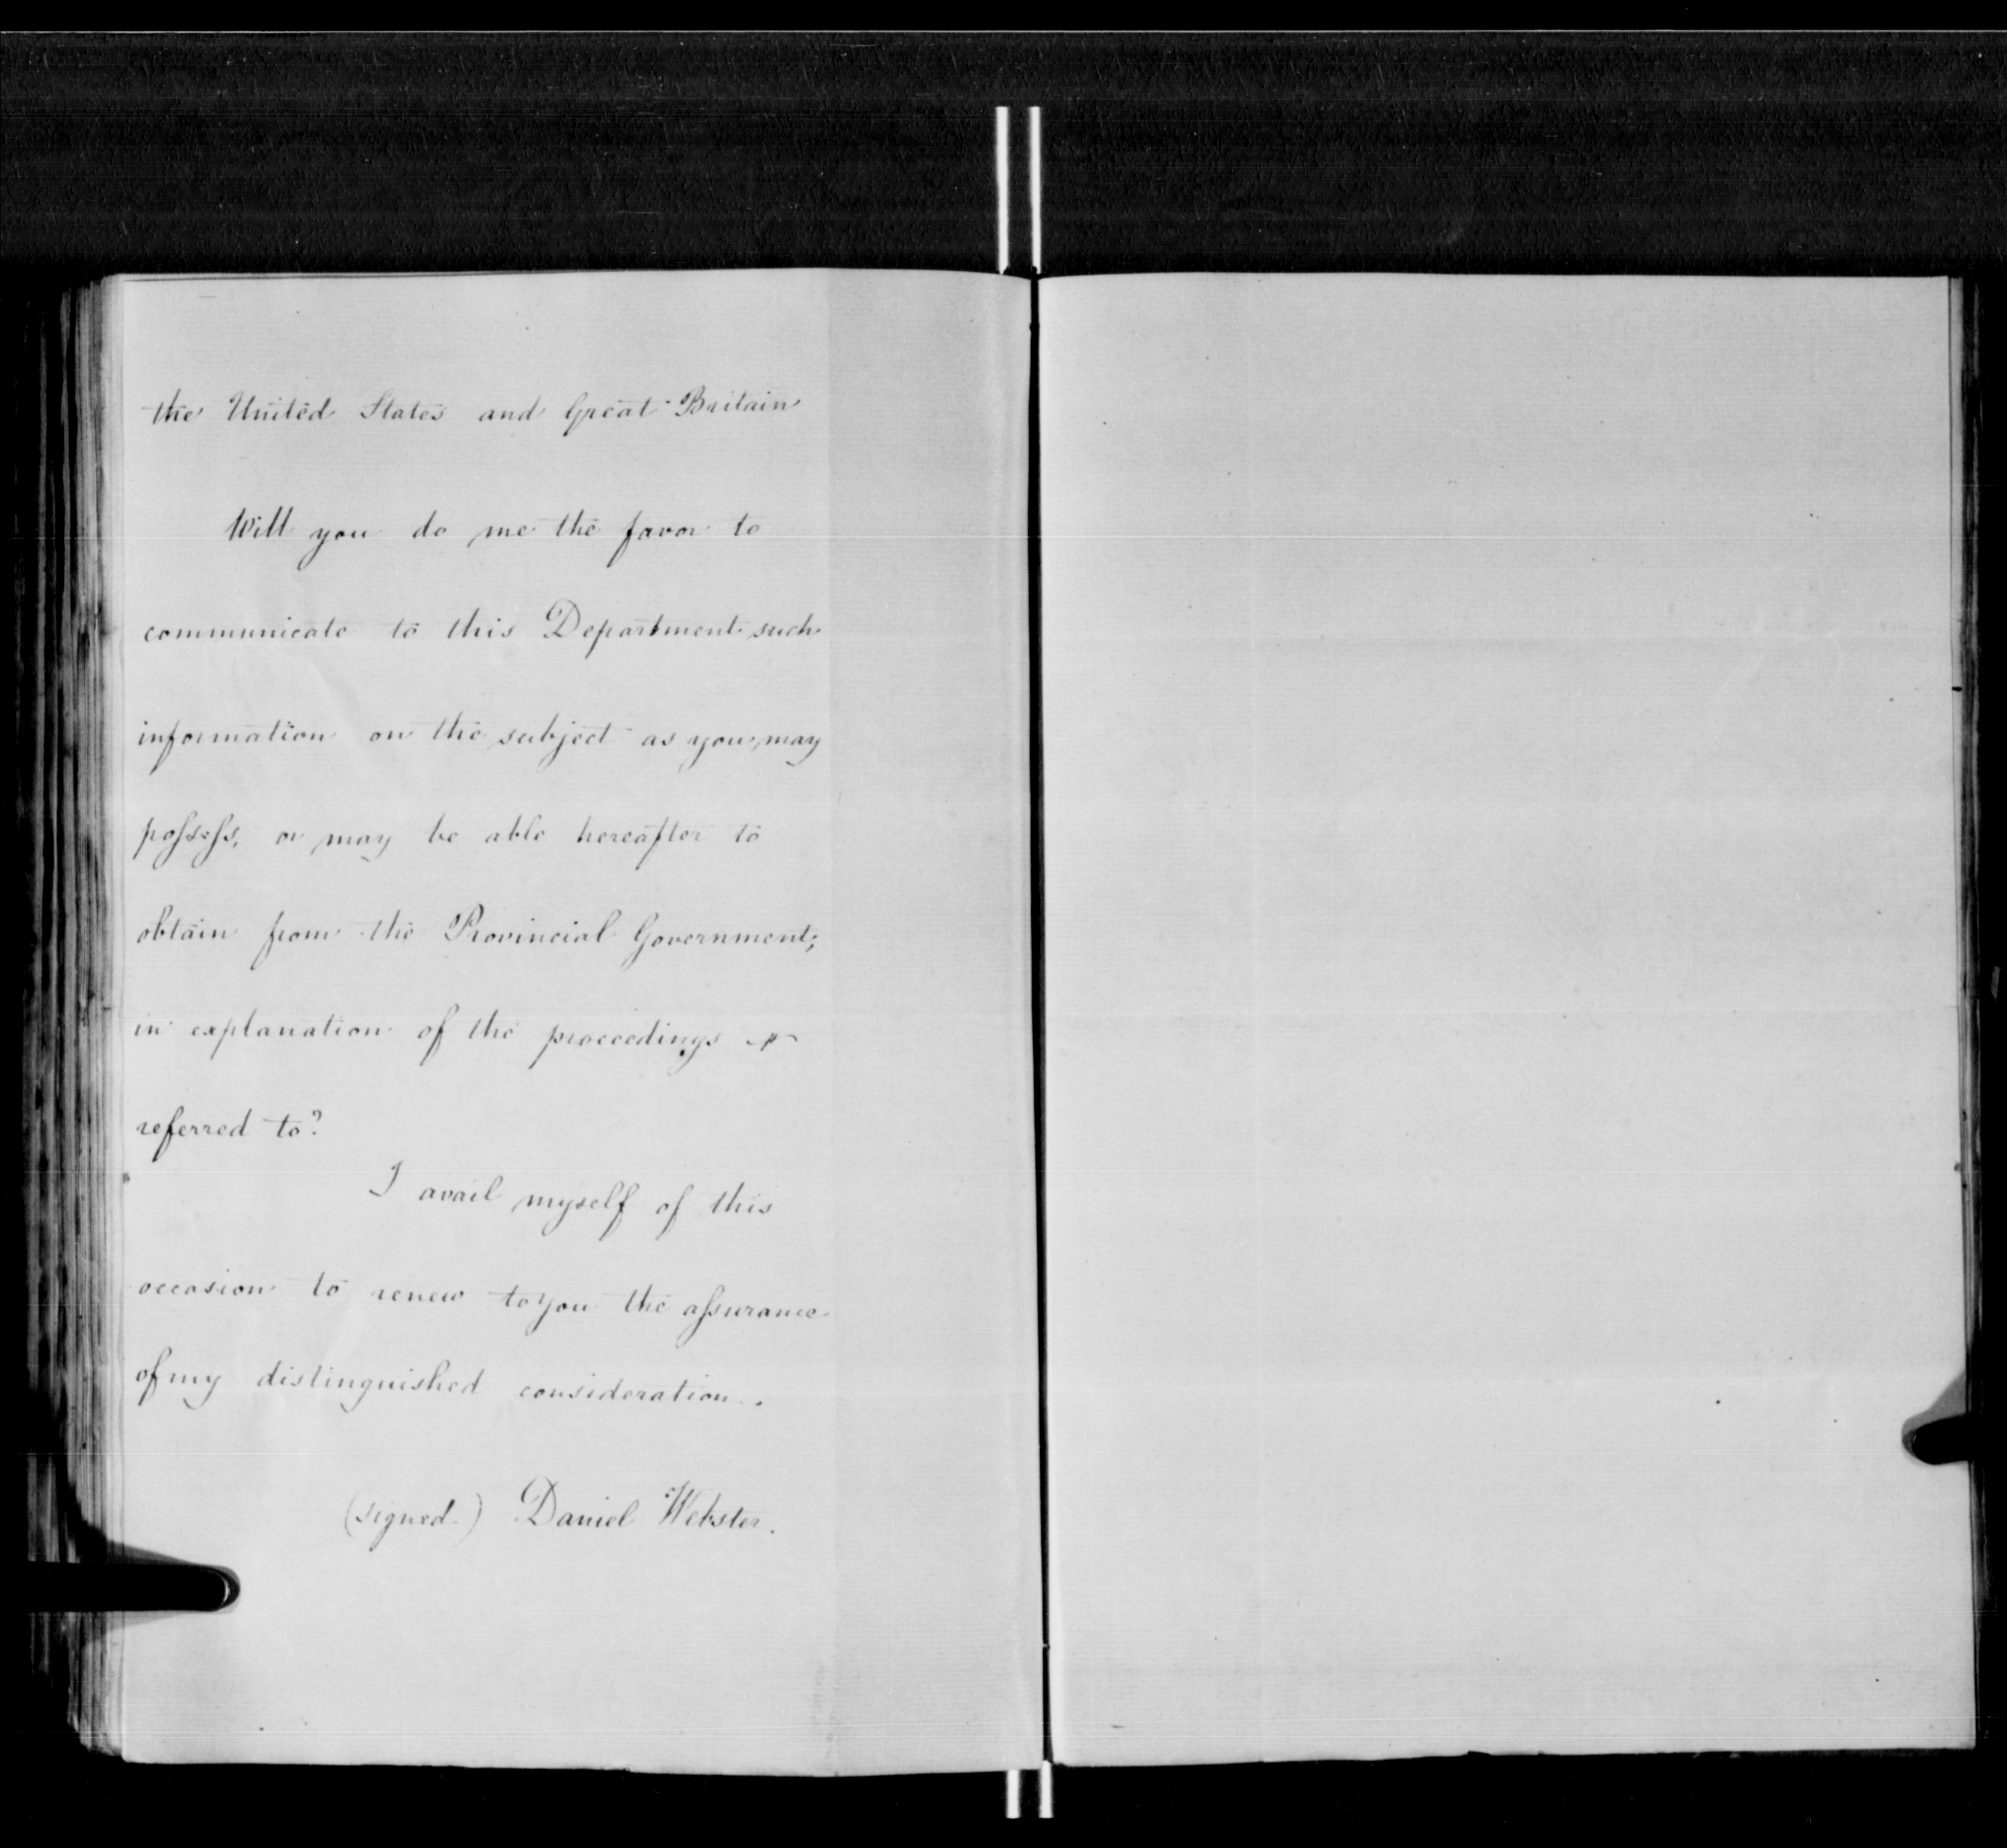 the United States and Great Britain
Will you do me the favor to
communicate to this Department such
information on the subject as you may
possess, or may be able hereafter to
obtain from the Provincial Government,
in explanation of the proceedings
referred to?
I avail myself of this
occasion to renew to you the assurance
of my distinguished consideration.
(signed.) Daniel Webster.